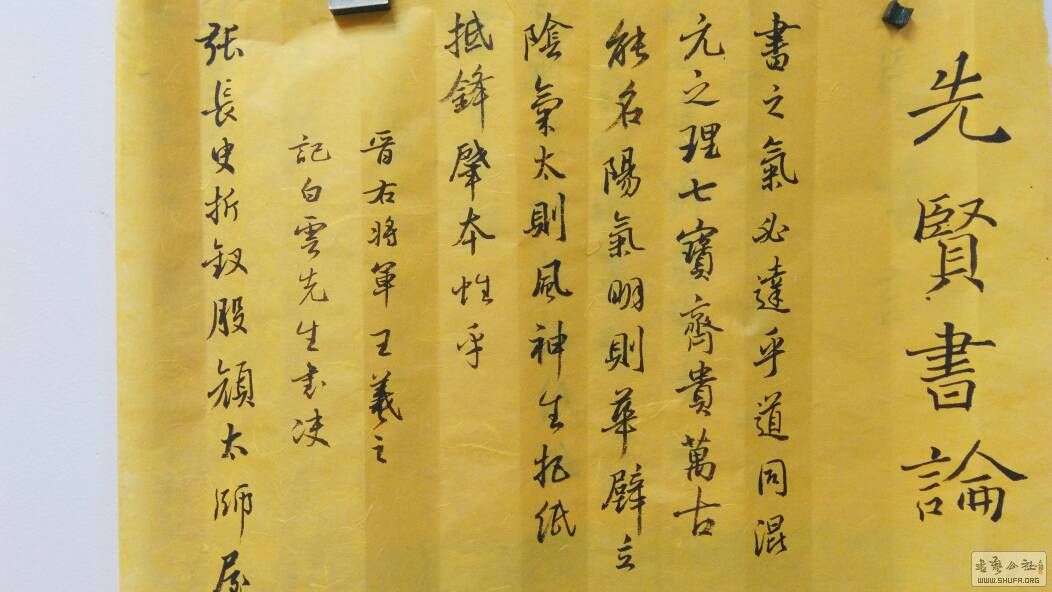 先賢書論
書之氣必達乎道同混
元之理七寶齊貴萬古
能名陽氣明則華壁立
陰氣太則風神生把紙
抵鋒肇本性乎
晉右將軍王羲之
記白雲先生書決
張長史折釵股顏太師屋
書藝公社
WWW.SHUFA.ORG